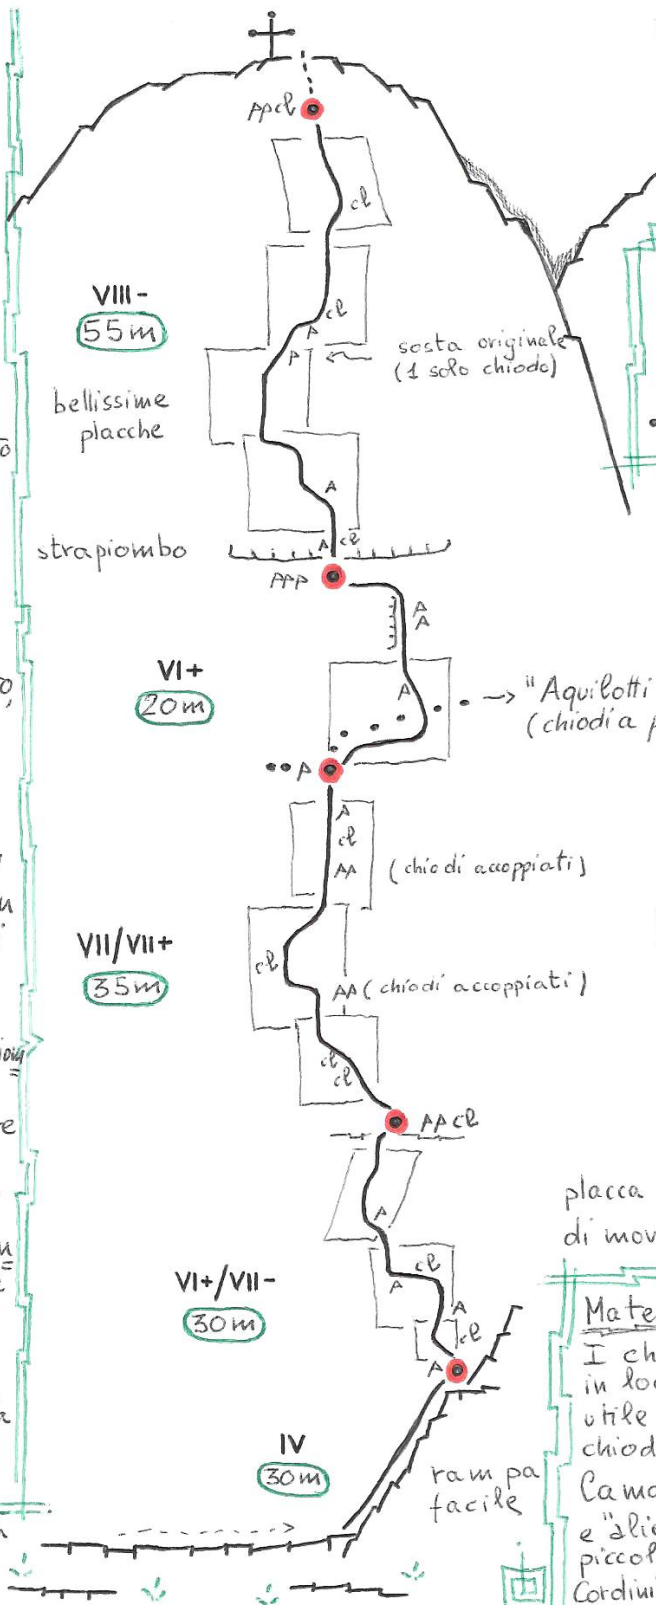 ppcl
cl
VIII-
55m
cl
P
P
sosta originale
(1 solo chiodo)
bellissime
placche
A
A cl
strapiombo
PPP
A
A
VI+
20m
A
"Aquilotti
(chiodi a p
P
A
cl
AA
(chiodi accoppiati)
VII/VII+
35m
cl
AA (chiodi accoppiati)
cl
cl
AA cl
placca
di mov
P
cl
VI+/VII-
30m
A
A
cl
P
IV
30m
rampa
facile
Mate
I ch
in lo
utile
chiod
Cama
e "alie
piccol
Cordini